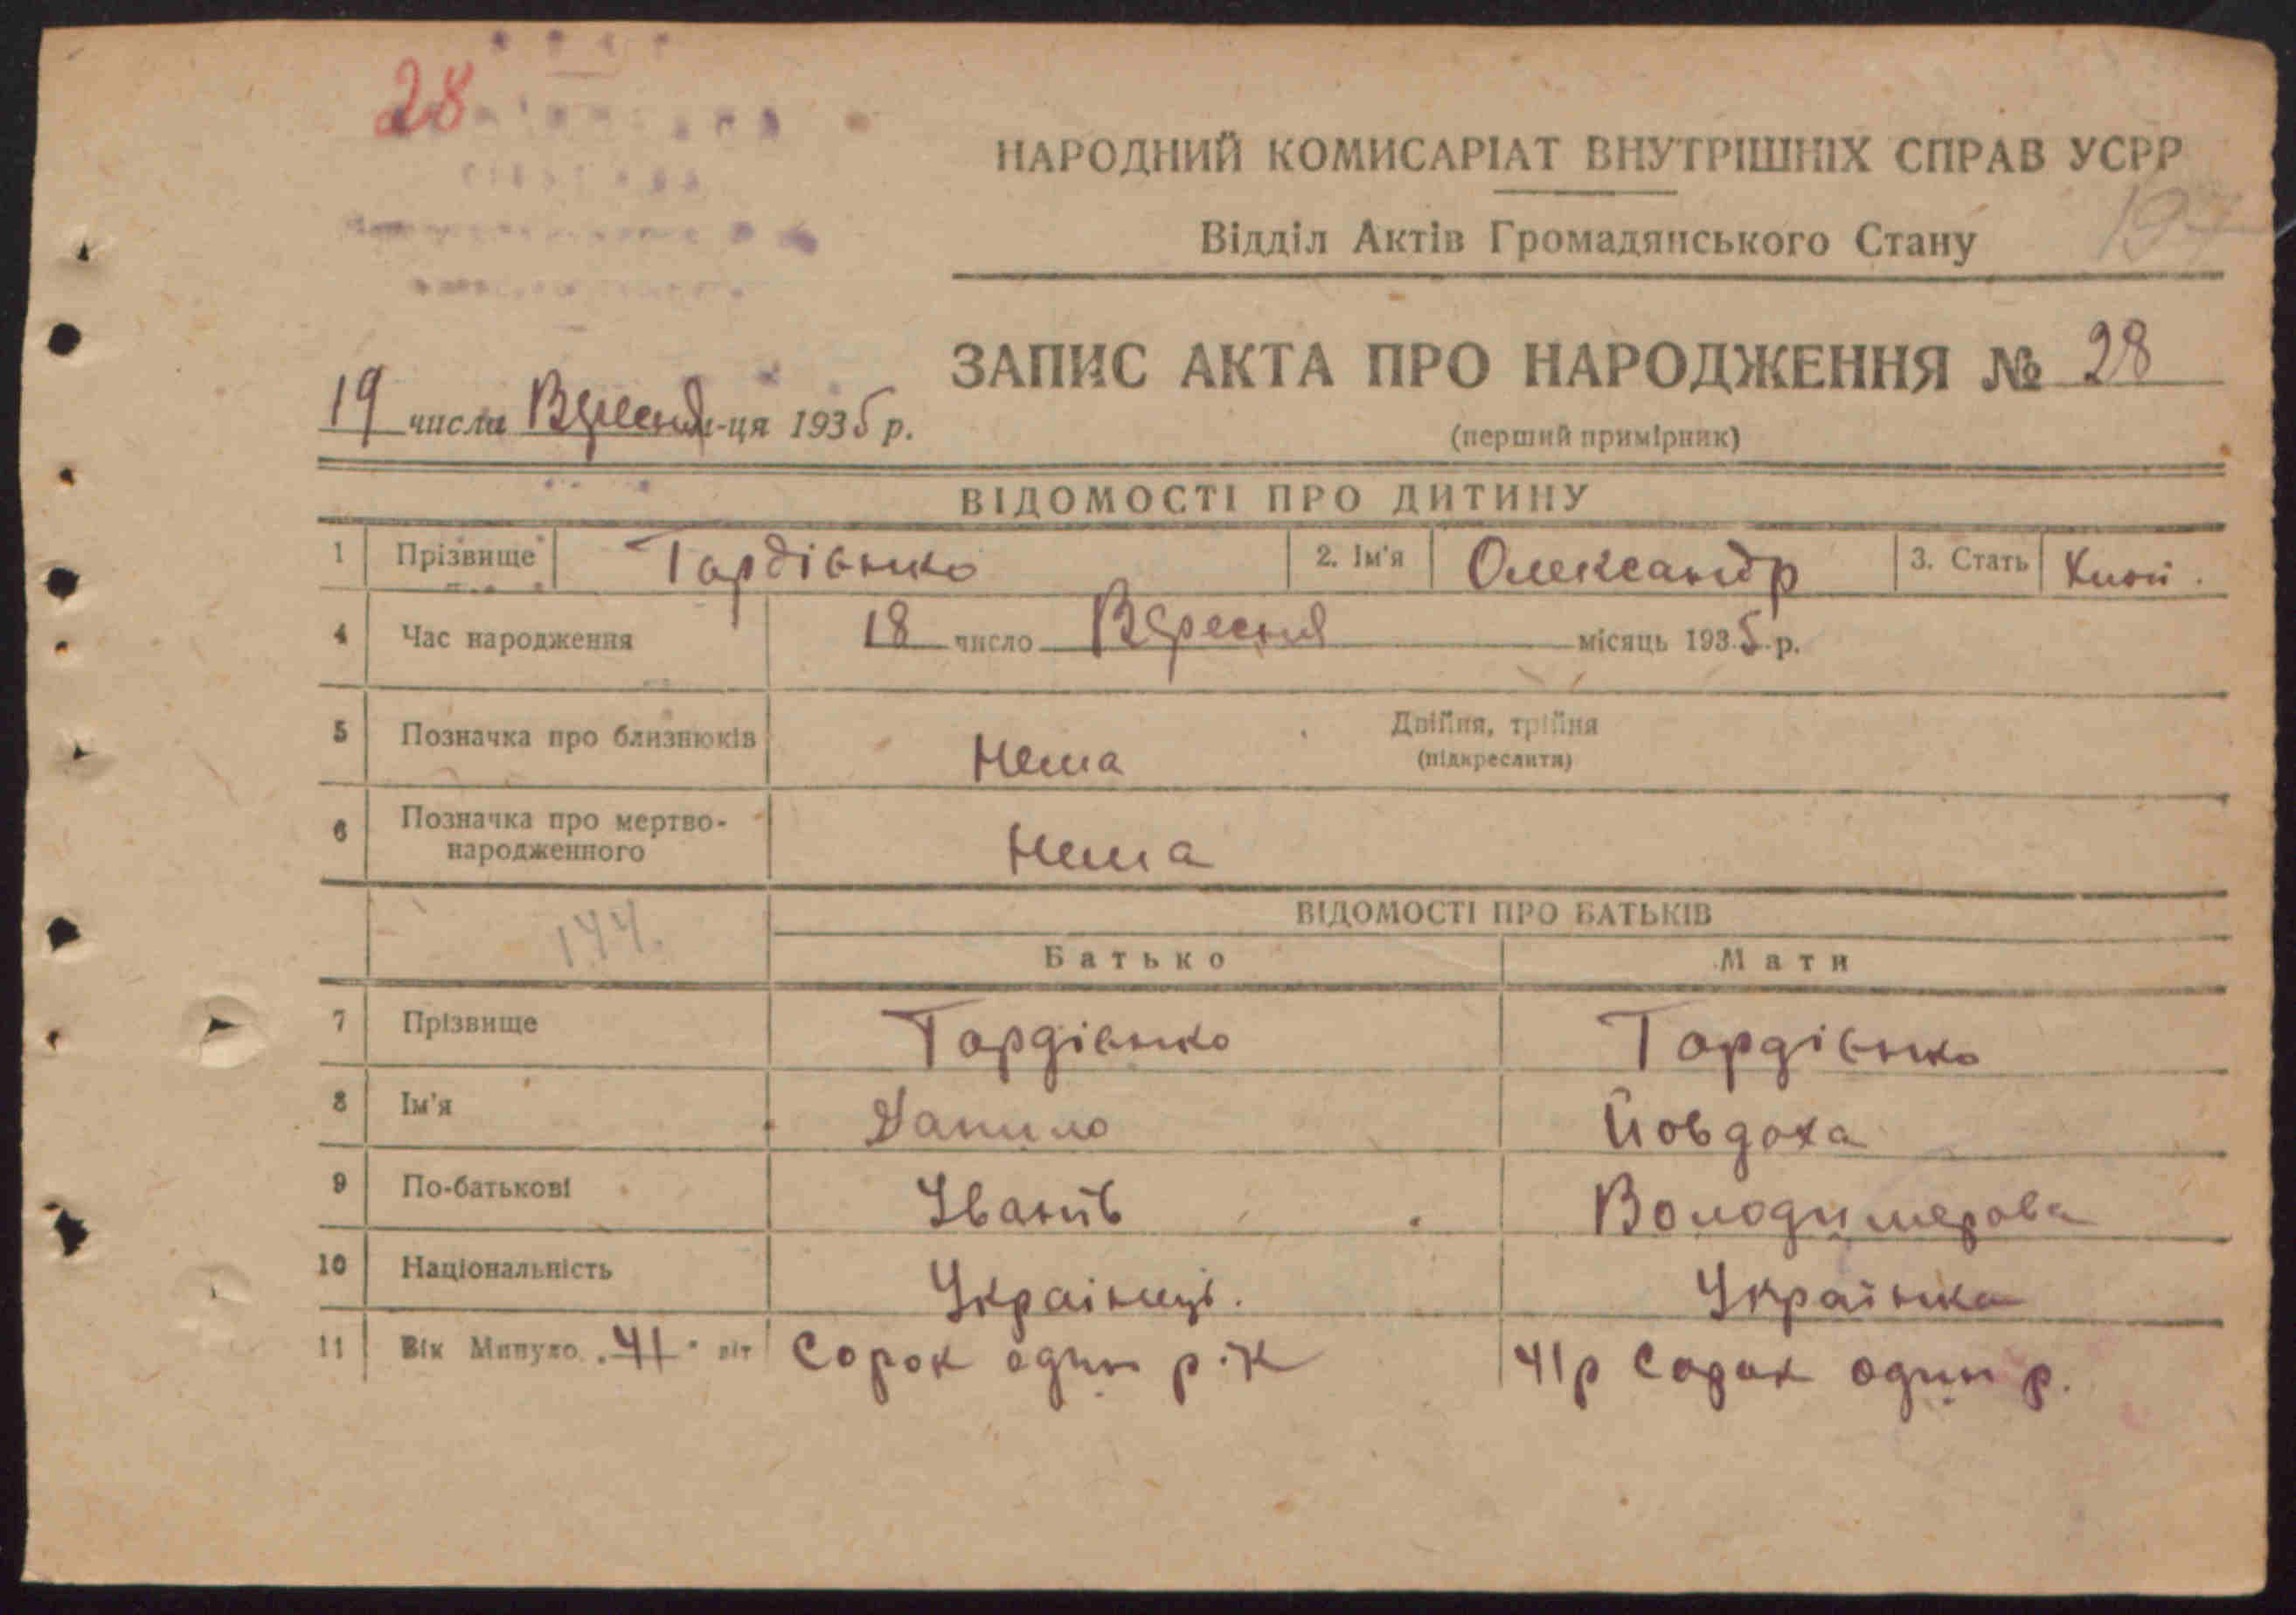 28
НАРОДНИЙ КОМИСАРІАТ ВНУТРІШНІХ СПРАВ УСРР
Відділ Актів Громадянського Стану
ЗАПИС АКТА ПРО НАРОДЖЕННЯ № 28
19 числа Вересня-ця 1935 р.
(перший примірник)
ВІДОМОСТІ ПРО ДИТИНУ
1 Прізвище Гордієнко 2. Ім'я Олександр 3. Стать
4 Час народження 18 число Вересня місяць 1935 р.
5 Позначка про близнюків Нема Двійня, трійня
(підкреслити)
6 Позначка про мертво-
народженного Нема
144.
ВІДОМОСТІ ПРО БАТЬКІВ
Батько Мати
7 Прізвище Гордієнко Гордієнко
8 Ім'я Данило Йовдоха
9 По-батькові Іванів Володимерова
10 Національність Українка
11 Вік Минуло 41 літ Сорок один р.к 41р Сорок один р.